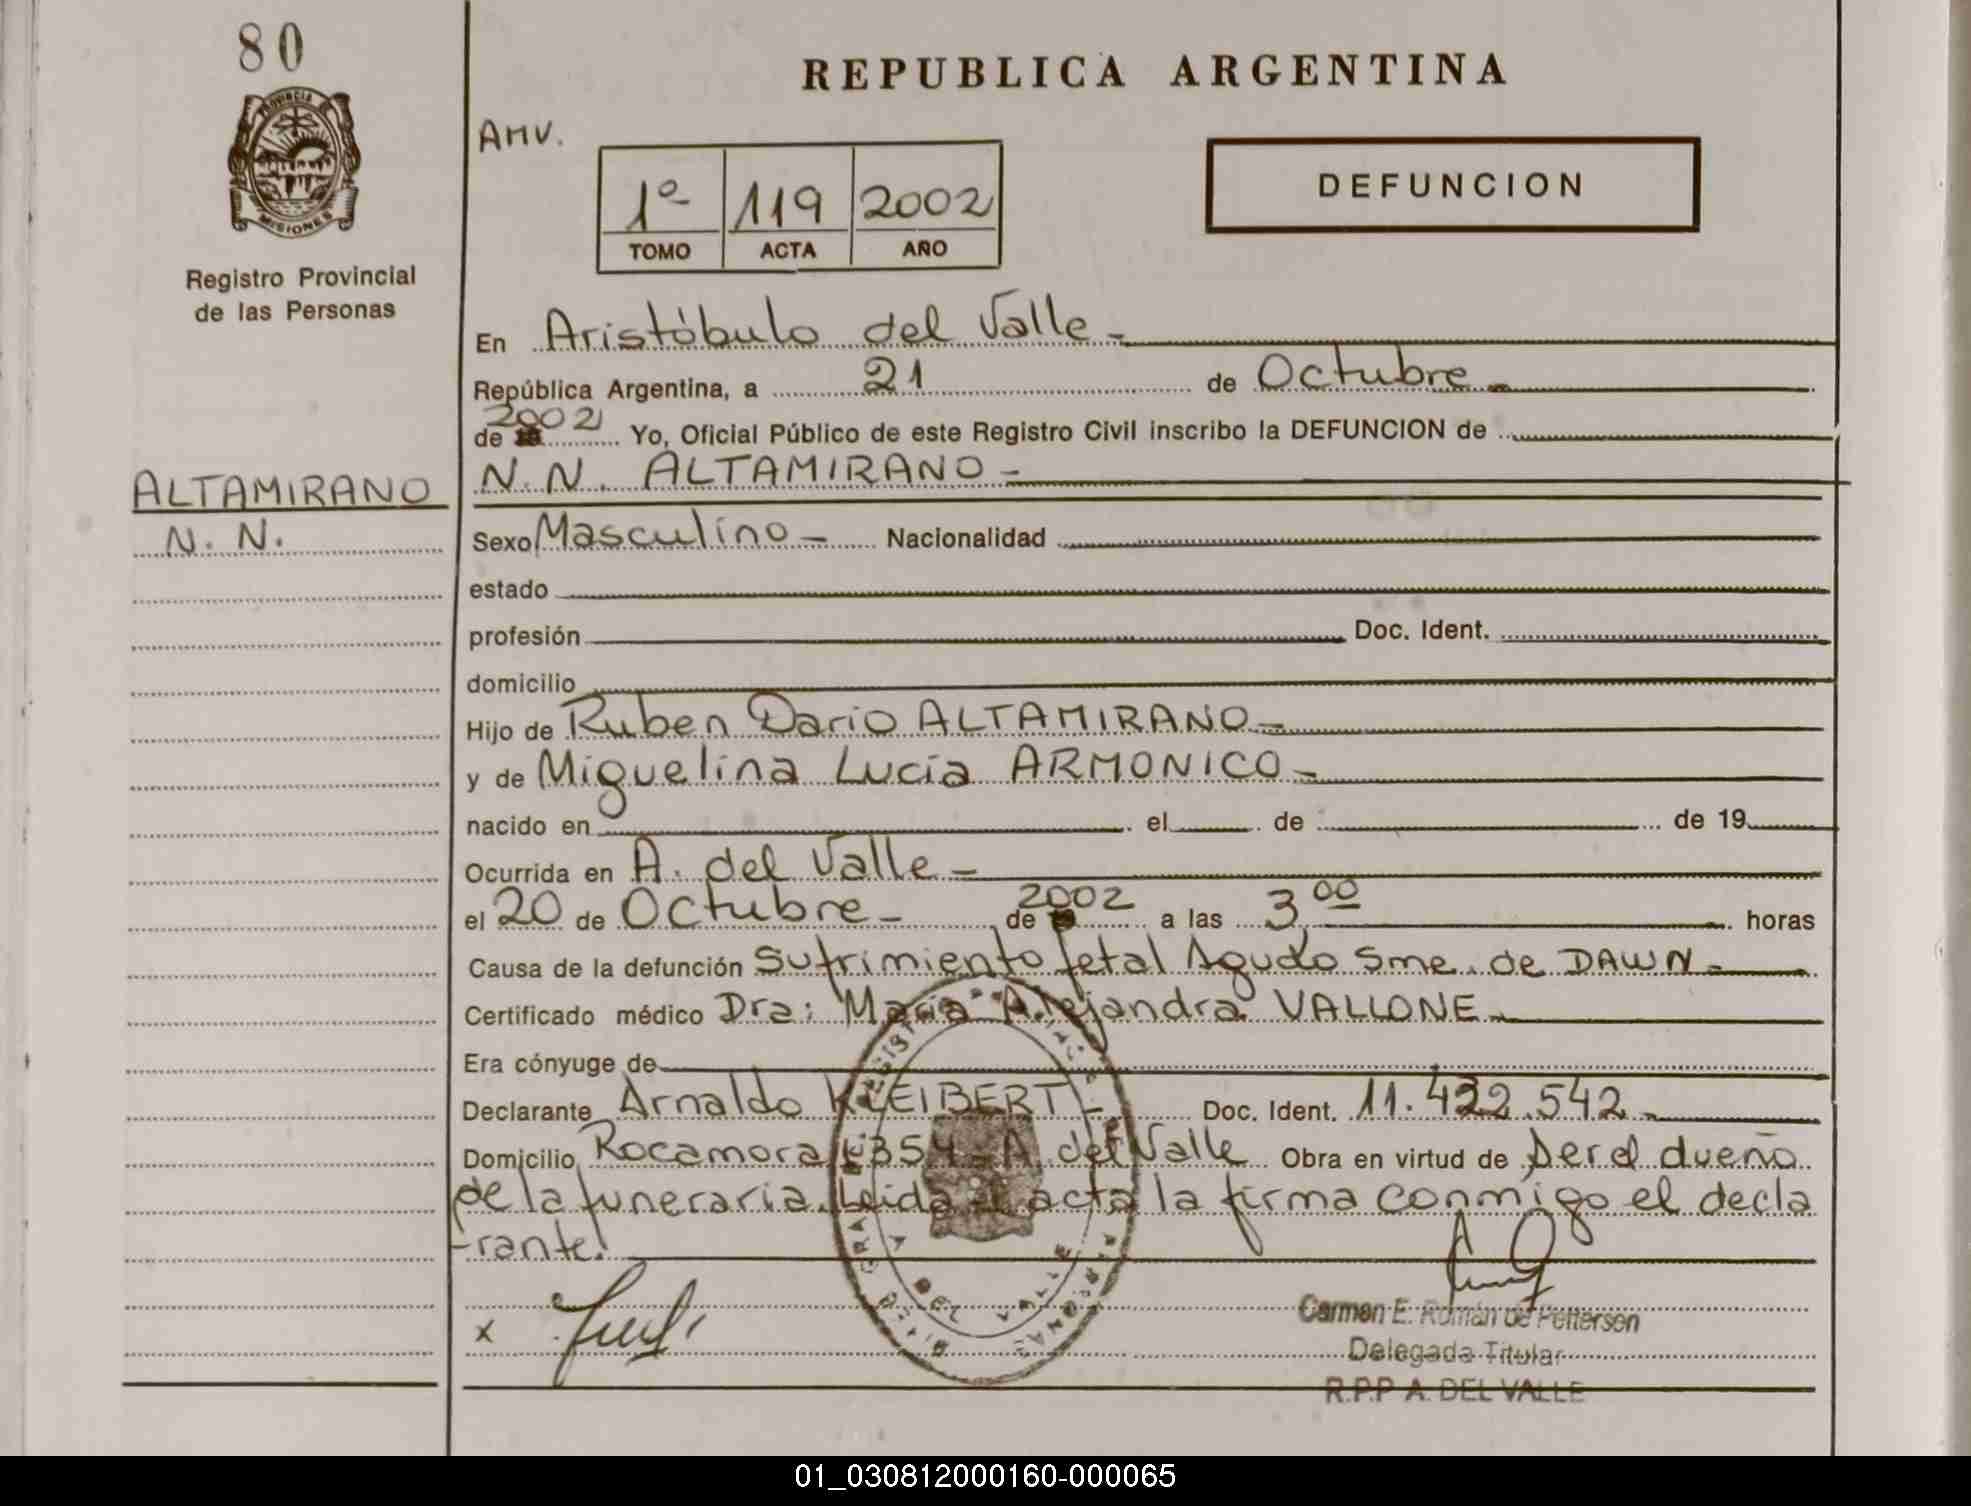 80
REPUBLICA ARGENTINA
PROVINCIA DE
MISIONES
Registro Provincial
de las Personas
AMV.
1º 119 2002
TOMO ACTA AÑO
DEFUNCION
En Aristóbulo del Valle -
República Argentina, a 21 de Octubre -
de 2002 Yo, Oficial Público de este Registro Civil inscribo la DEFUNCION de
ALTAMIRANO
N. N.
N. N. ALTAMIRANO -
Sexo Masculino - Nacionalidad
estado
profesión Doc. Ident.
domicilio
Hijo de Ruben Dario ALTAMIRANO -
y de Miguelina Lucia ARMONICO -
nacido en el de de 19
Ocurrida en A. del Valle -
el 20 de Octubre - de 2002 a las 3 00 horas
Causa de la defunción Sufrimiento fetal Agudo Sme. de DAWN -
Certificado médico Dra: Maria Alejandra VALLONE -
Era cónyuge de
Declarante Arnaldo KLEIBERT - Doc. Ident. 11.422.542 -
Domicilio Rocamora 354 - A. del Valle Obra en virtud de Ser el dueño
de la funeraria. Leida el acta la firma conmigo el decla
rante.
x
Carmen E. Román de Pettersen
Delegada Titular
R.P.P A. DEL VALLE
01_030812000160-000065